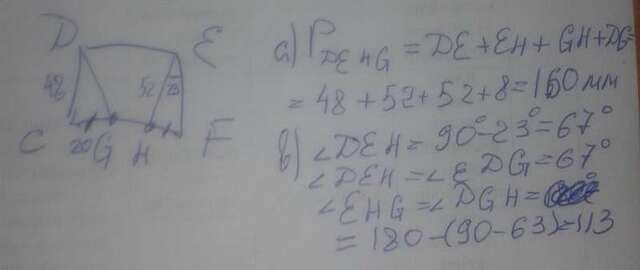 D E
48 52 23
C 20 G H F
a) P DEHG = DE + EH + GH + DG =
= 48 + 52 + 52 + 8 = 160 мм
b) ∠DEH = 90° - 23° = 67°
∠DEH = ∠EDG = 67°
∠EHG = ∠DGH =
= 180 - (90 - 63) = 113